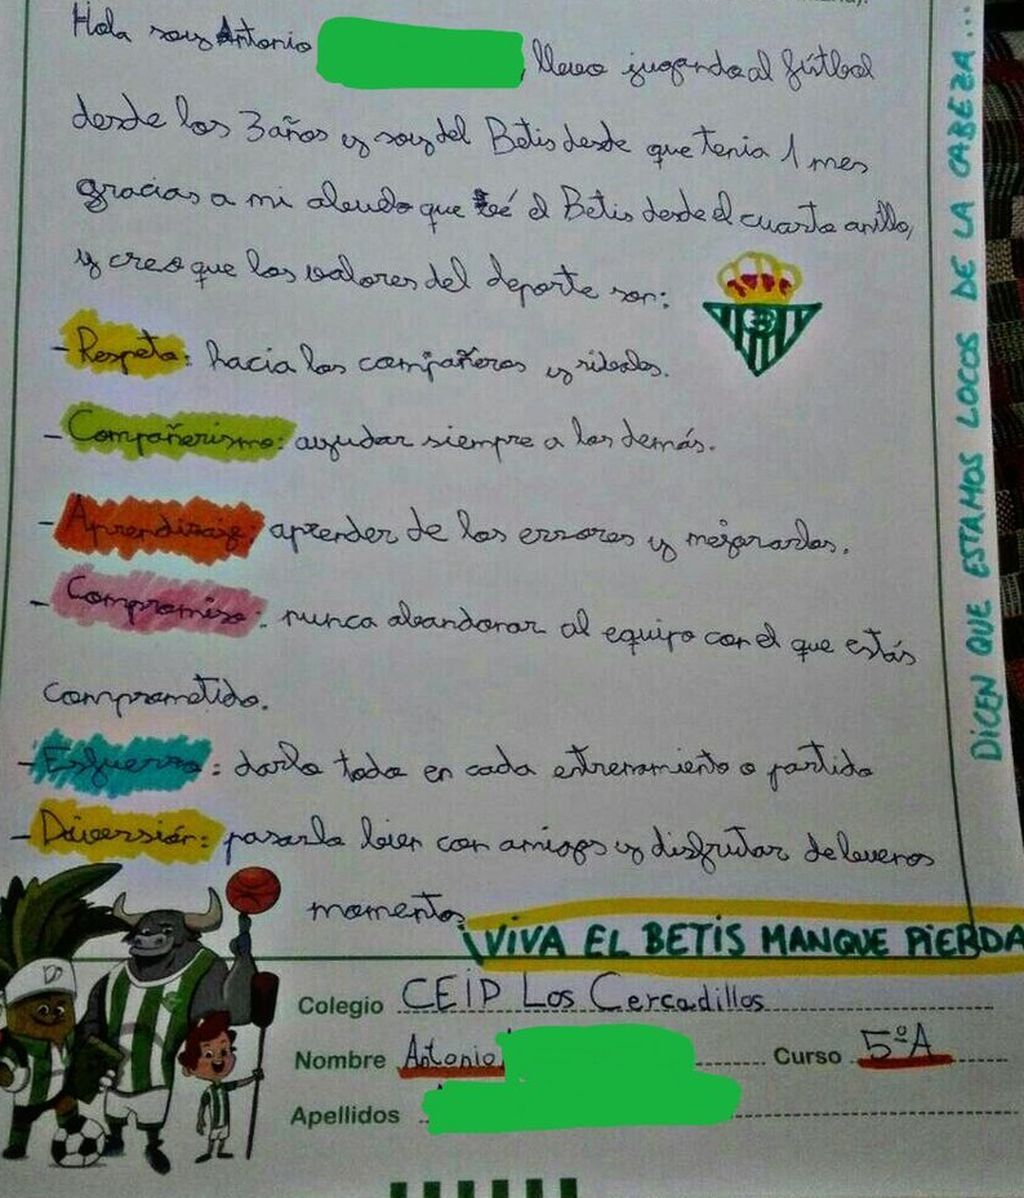 Hola soy Antonio , llevo jugando al fútbol
desde los 3 años y soy del Betis desde que tenia 1 mes
gracias a mi abuelo que ve el Betis desde el cuarto anillo,
y creo que los valores del deporte son:
- Respeto: hacia los compañeros y rivales.
- Compañerismo: ayudar siempre a los demás.
- Aprendizaje: aprender de los errores y mejorarlos.
- Compromiso: nunca abandonar al equipo con el que estás
comprometido.
- Esfuerzo: darlo todo en cada entrenamiento o partido
- Diversión: pasarlo bien con amigos y disfrutar de buenos
momentos
¡VIVA EL BETIS MANQUE PIERDA
DICEN QUE ESTAMOS LOCOS DE LA CABEZA...
Colegio CEIP Los Cercadillos
Nombre Antonio Curso 5ºA
Apellidos